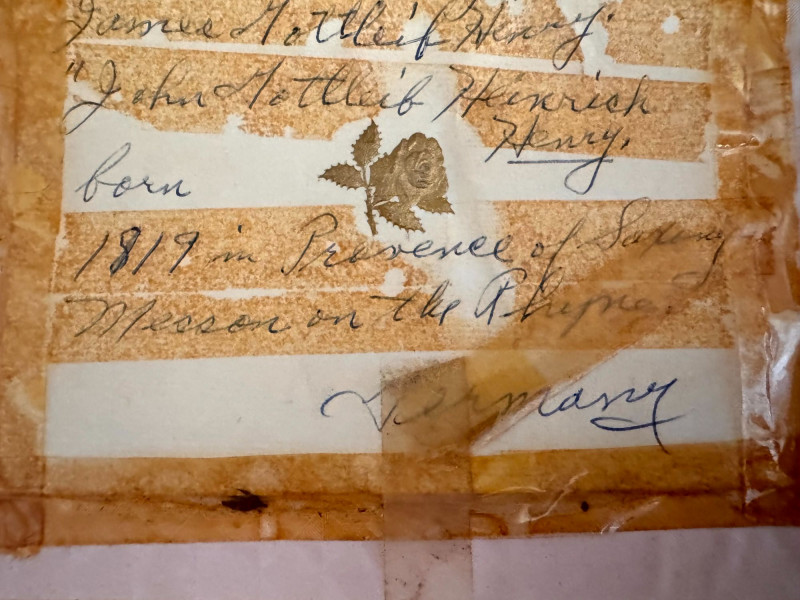 James Gottleib Henry.
"John Gottleib Heinrich
Henry.
born
1819 in Provence of Saxony
Messon on the Rhyne.
Germany